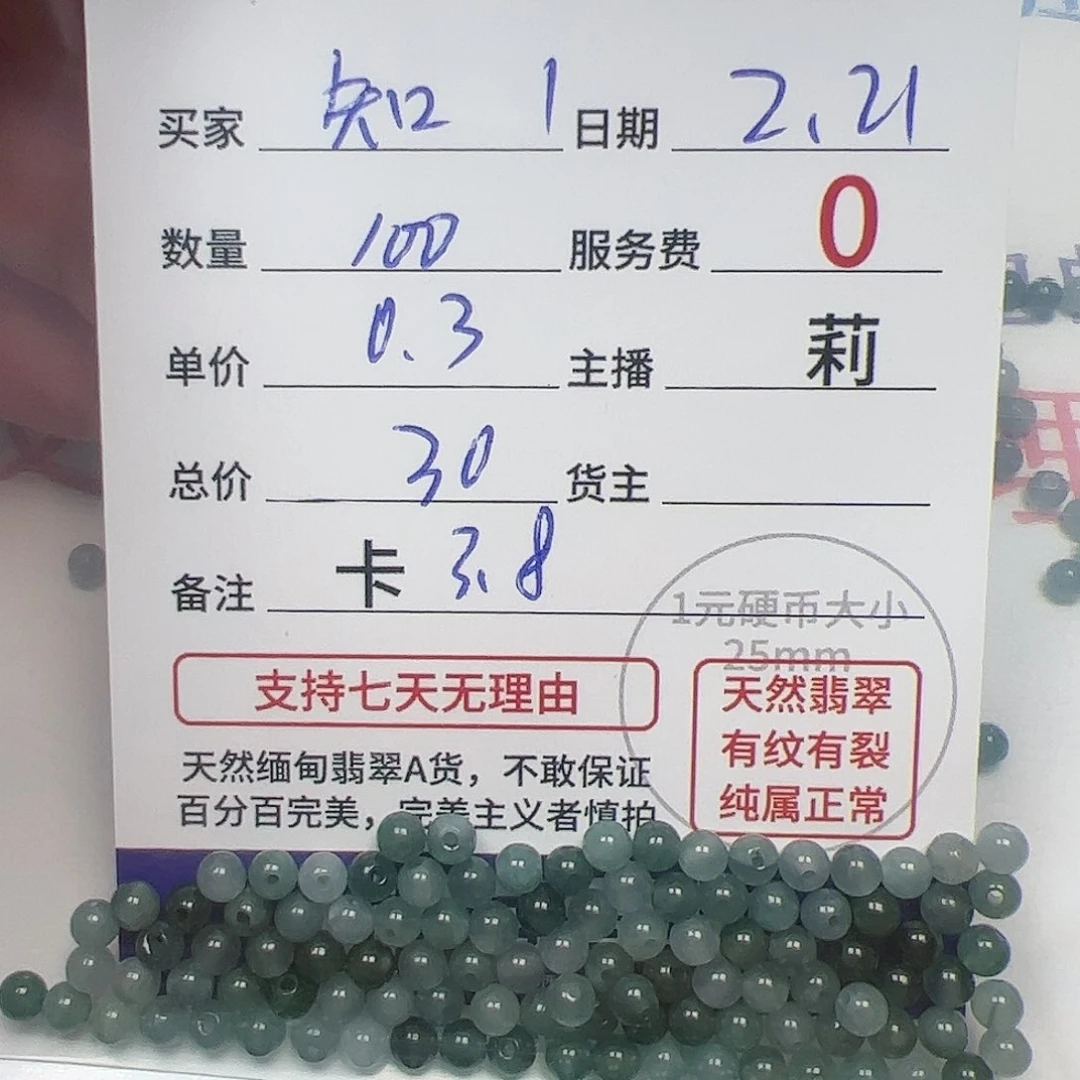 买家 知 1 日期 2.21
数量 100 服务费 0
单价 0.3 主播 莉
总价 30 货主
备注 卡 3.8
1元硬币大小
25mm
支持七天无理由
天然翡翠
有纹有裂
纯属正常
天然缅甸翡翠A货，不敢保证
百分百完美，完美主义者慎拍